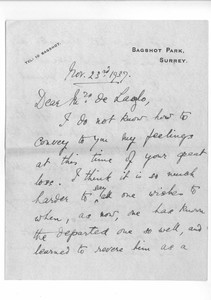 TEL: 75 BAGSHOT.
BAGSHOT PARK,
SURREY.
Nov. 23rd 1937.
Dear Mrs de Laszlo,
I do not know how to
convey to you my feelings
at this time of your great
loss. I think it is so much
harder to say all one wishes to
when, as now, one has known
the departed one so well, and
learned to revere him as a